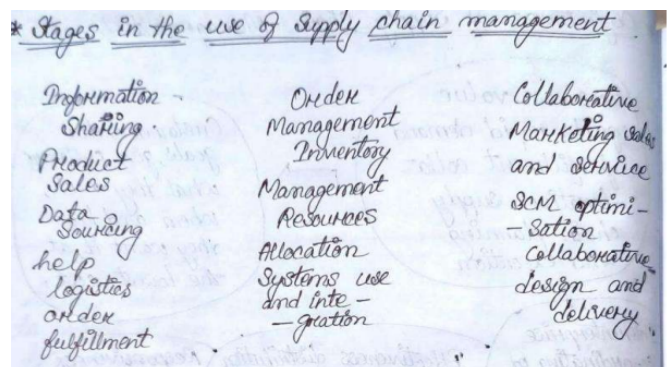 * Stages in the use of Supply chain management
Information -
Sharing.
Product
Sales
Data
Sourcing
help
logistics
order
fulfillment
Order
Management
Inventory
Management
Resources
Allocation
Systems use
and inte -
- gration
Collaborative
Marketing sales
and service
SCM optimi -
- sation
Collaborative
design and
delivery